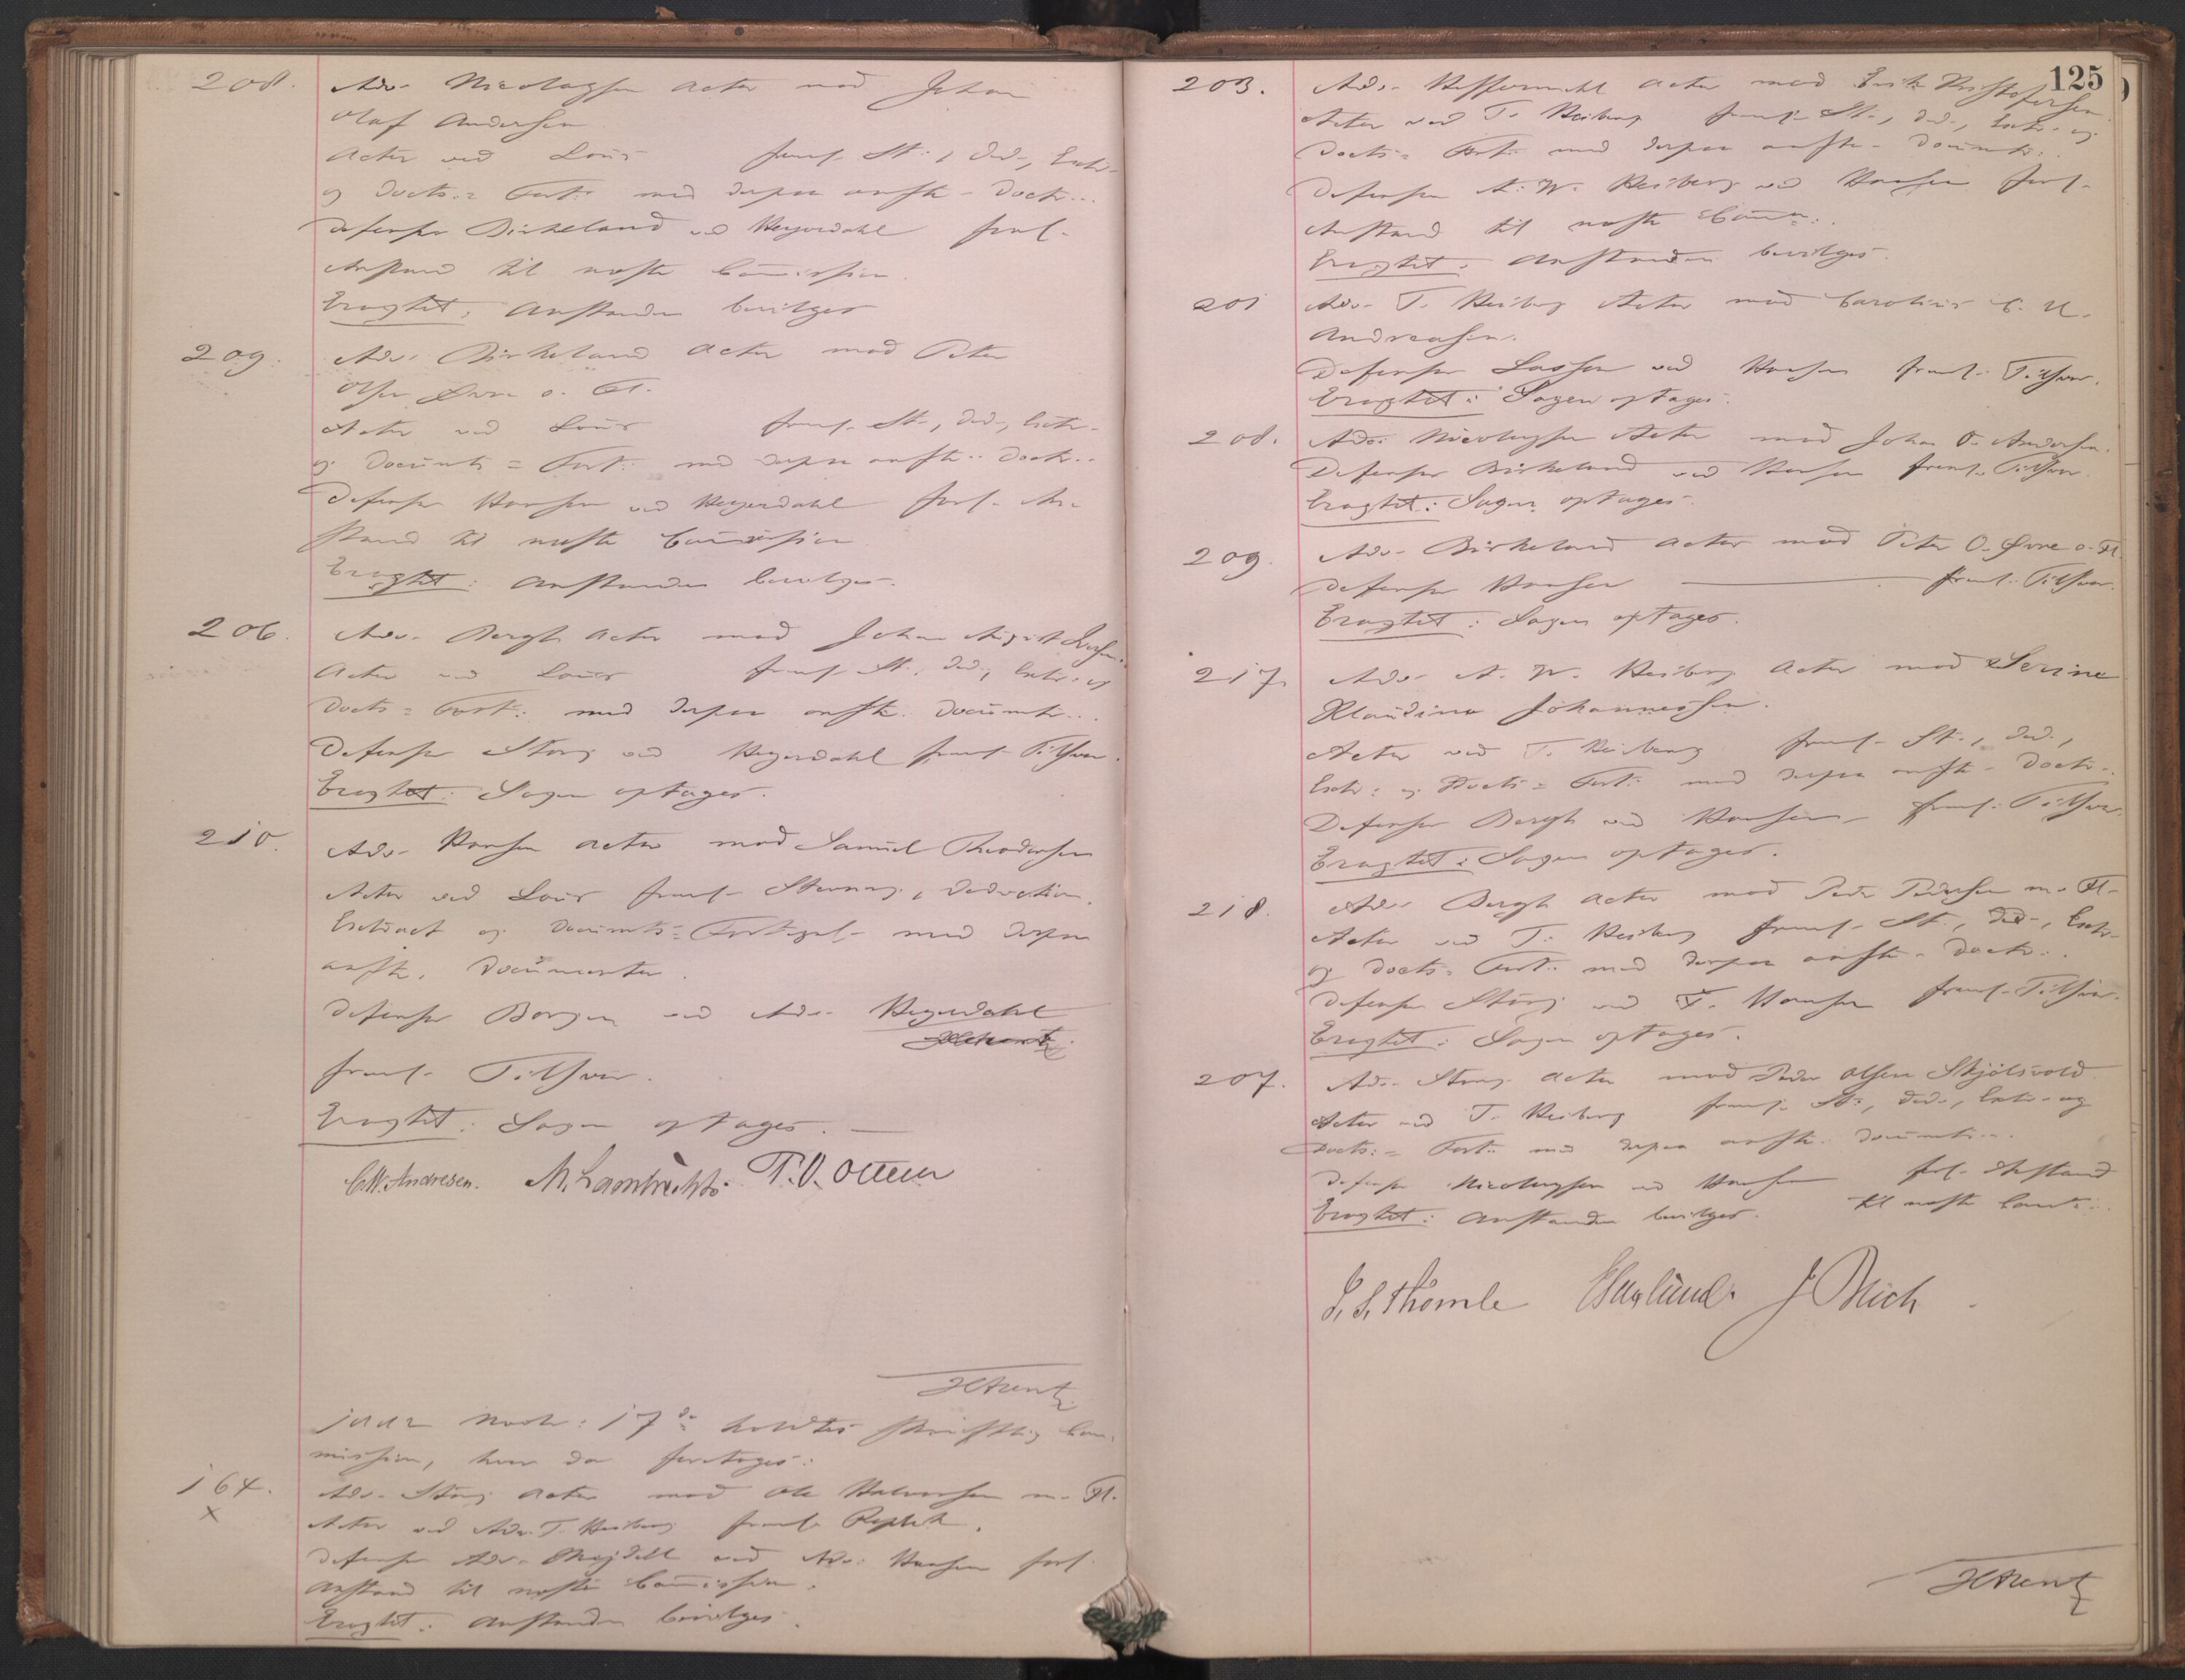 208. Adv. Nicolaysen Actor mod Johan
Olaf Andersen
Actor ved Lous freml. St., Ded., Extr.
og Docts.= Fort. med derpaa anfte. Doctr.
Defensor Birkeland ved Heyerdahl forl.
Anstand til næste Commission.
Eragtet: Anstanden bevilges
209. Adv. Birkeland Actor mod Peter
Olsen Øvre o. Fl.
Actor ved Lous freml. St., Ded., Extr.
og Documts = Fort. med derpaa anfte. Doctr.
Defensor Hansen ved Heyerdahl forl. An-
stand til næste Commission
Eragtet: Anstanden bevilges.
206. Adv. Bergh Actor mod Johan August
Actor ved Lous freml. St., Ded., Extr. og
Docts = Fort. med derpaa anfte. Documtr.
Defensor Stang ved Heyerdahl freml. Tilsvar.
Eragtet: Sagen optages.
210. Adv. Hansen Actor mod Samuel Theodorsen
Actor ved Lous freml. Stevning, Deduction,
Extract og Documts.= Fortegnl. med derpaa
anfte. Documenter.
Defensor Borgen ved Adv. Heyerdahl
HArentz
freml. Tilsvar.
Eragtet: Sagen optages. —
C.W. Andresen. M. Lambrechts. T.O.
HArentz
1882 Novbr: 17de holdtes skriftlig Com-
mission, hvor da foretoges:
164. Adv. Stang Actor mod Ole Halvorsen m. Fl.
x
Actor ved Adv. T. Heiberg freml. Replik.
Defensor Adv. ved Adv. Hansen forl.
Anstand til næste Commission.
Eragtet: Anstanden bevilges.
125
203. Adv. Actor mod Erik Kristofersen
Actor ved T. Heiberg freml. St., Ded., Extr. og
Docts = Fort. med derpaa anfte. Documtr.
Defensor A. W. Heiberg ved Hansen forl.
Anstand til næste Comm.
Eragtet: Anstanden bevilges.
201 Adv. T. Heiberg Actor mod Carolius C. U.
Andreasen.
Defensor Lassen ved Hansen freml. Tilsvar.
Eragtet: Sagen optages.
208. Adv. Nicolaysen Actor mod Johan O. Andersen.
Defensor Birkeland ved Hansen freml. Tilsvar.
Eragtet: Sagen optages.
209. Adv. Birkeland Actor mod Peter O. Øvre o. Fl.
Defensor Hansen — freml. Tilsvar.
Eragtet: Sagen optages.
217. Adv. A. W. Heiberg Actor mod Serine
Klaudine Johannessen.
Actor ved T. Heiberg freml. St., Ded.,
Extr. og Docts = Fort. med derpaa anfte. Doctr.
Defensor Bergh ved Hansen freml. Tilsvar.
Eragtet: Sagen optages.
218. Adv. Bergh Actor mod Peder Pedersen m. Fl.
Actor ved T. Heiberg freml. St., Ded., Extr.
og Docts. Fort. med derpaa anfte. Doctr.
Defensor Stang ved F. Hansen freml. Tilsvar.
Eragtet: Sagen optages.
207. Adv. Stang Actor mod Peder Olsen Skjolsvold.
Actor ved T. Heiberg freml. St., Ded., Extr. og
Docts. = Fort. med derpaa anfte. Documtr.
Defensor Nicolaysen ved Hansen forl. Anstand
Eragtet: Anstanden bevilges. til næste Comm.
G. S. Thomle Haslund. J Reich
HArentz